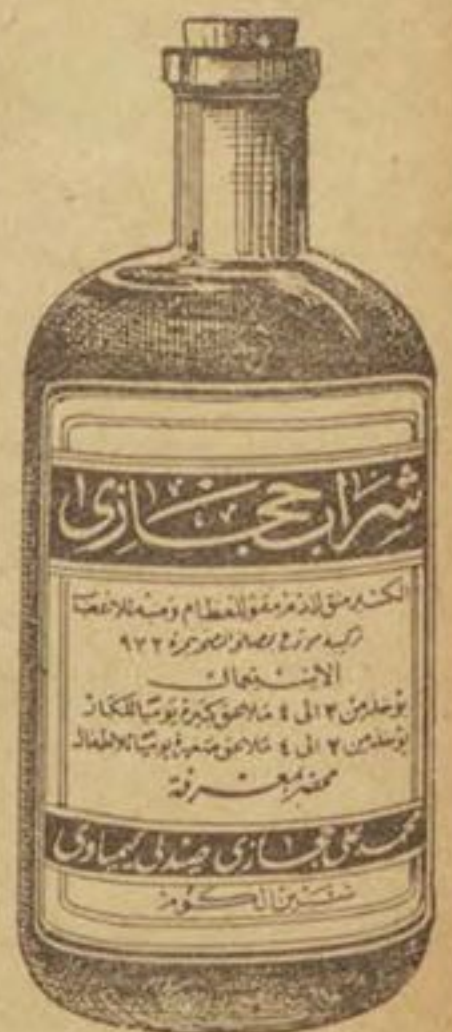 شراب حجازى
اكسير منق للدم مقو للعظام ومنبه للاعصاب
الصحة نمرة ٩٢٢
الاستعمال
يؤخذ من ٢ الى ٤ ملاعق كبيرة يوميا للكبار
يؤخذ من ٢ الى ٤ ملاعق صغيرة يوميا للاطفال
محضر بمعرفة
محمد على حجازى صيدلى كيماوى
شبين الكوم